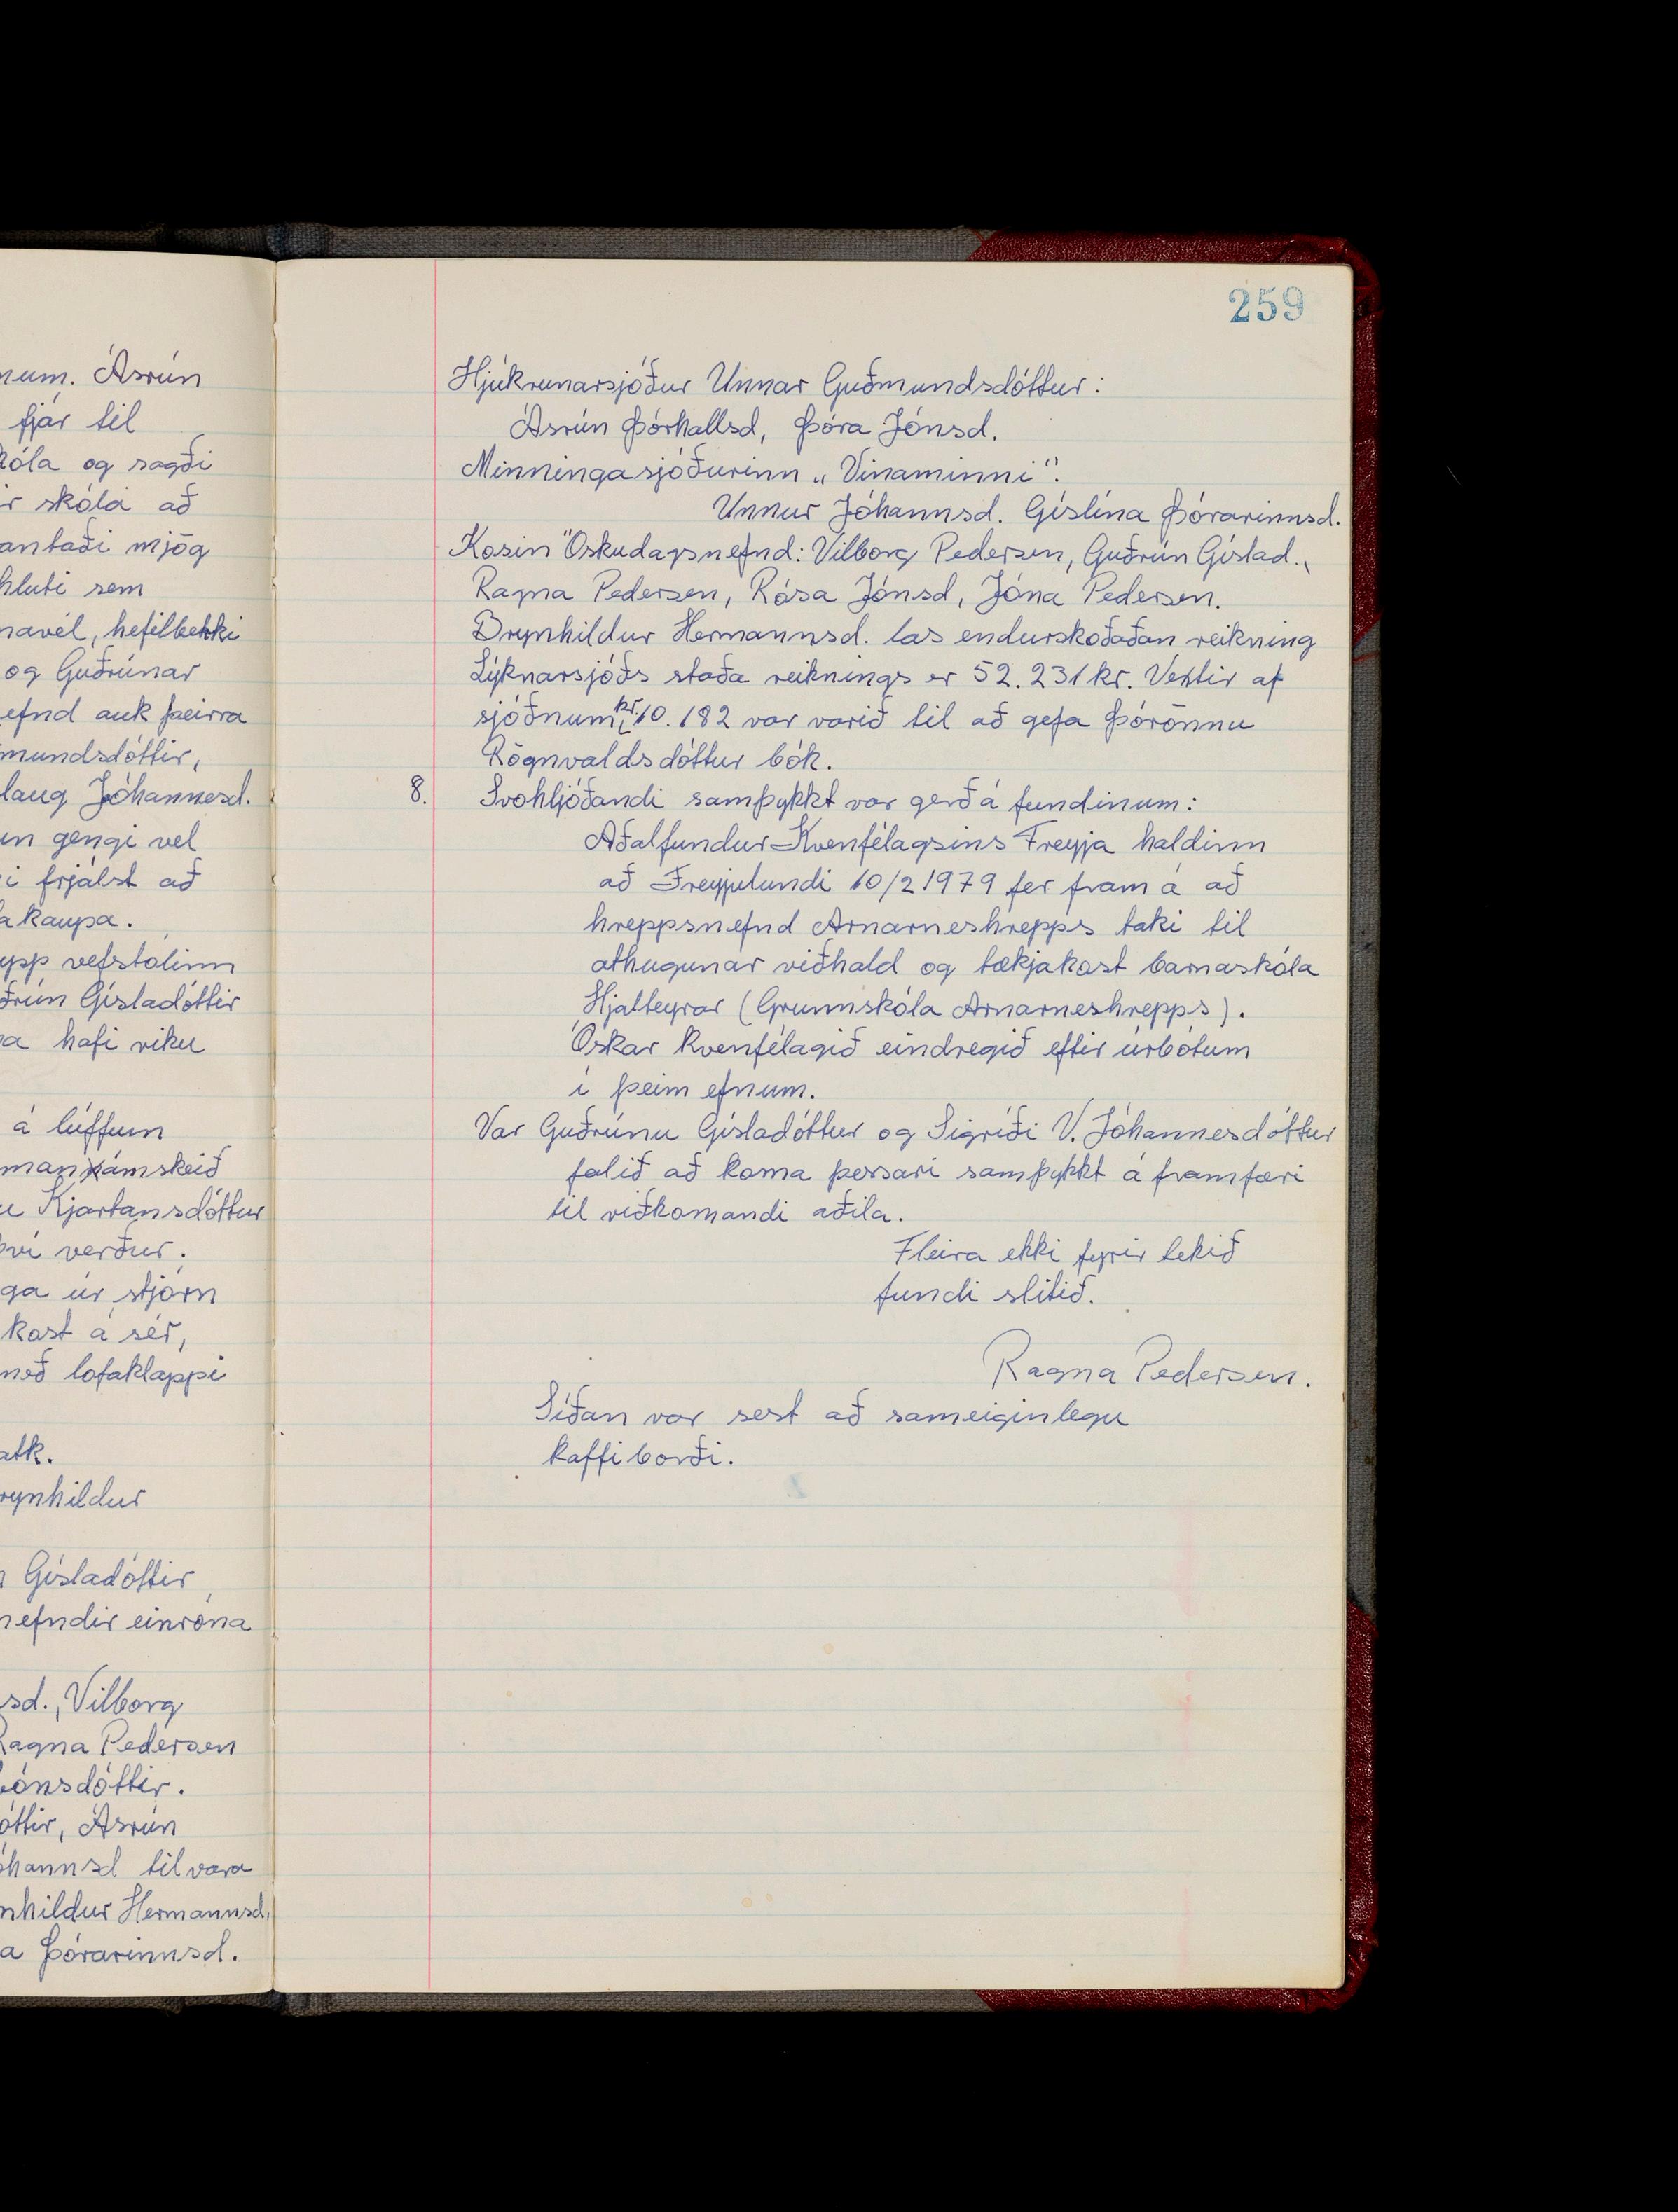 num. Ásrún
fjár til
skóla og sagði
r skóla að
vantaði mjög
hluti sem
navél, hefilbekki
og Guðrúnar
efnd auk þeirra
mundsdóttir,
laug Jóhannesd.
un gengi vel
i frjálst að
a kaupa.
upp vefstólinn
ðrún Gísladóttir
a hafi viku
á lúffum
man námskeið
u Kjartansdóttur
því verður.
ga úr stjórn
kost á sér,
með lofaklappi
atk.
rynhildur
n Gísladóttir
nefndir einróma
sd., Vilborg
Ragna Pedersen
bónsdóttir.
óttir, Ásrún
óhannsd til vara
nhildur Hermannsd.
a Þórarinnsd.
259
Hjúkrunarsjóður Unnar Guðmundsdóttur:
Ásrún Þórhallsd, Þóra Jónsd.
Minningasjóðurinn „Vinaminni".
Unnur Jóhannsd. Gíslína Þórarinnsd.
Kosin Öskudagsnefnd: Vilborg Pedersen, Guðrún Gíslad.,
Ragna Pedersen, Rósa Jónsd, Jóna Pedersen.
Brynhildur Hermannsd. las endurskoðaðan reikning
Líknarsjóðs staða reiknings er 52.231 kr. Vextir af
sjóðnum kr. 10.182 var varið til að gefa Þórönnu
Rögnvaldsdóttur bók.
8. Svohljóðandi samþykkt var gerð á fundinum:
Aðalfundur Kvenfélagsins Freyja haldinn
að Freyjulundi 10/2 1979 fer fram á að
hreppsnefnd Arnarneshrepps taki til
athugunar viðhald og tækjakost barnaskóla
Hjalteyrar (Grunnskóla Arnarneshrepps).
Óskar kvenfélagið eindregið eftir úrbótum
í þeim efnum.
Var Guðrúnu Gísladóttur og Sigríði V. Jóhannesdóttur
falið að koma þessari samþykkt á framfæri
til viðkomandi aðila.
Fleira ekki fyrir tekið
fundi slitið.
Ragna Pedersen.
Síðan var sest að sameiginlegu
kaffiborði.